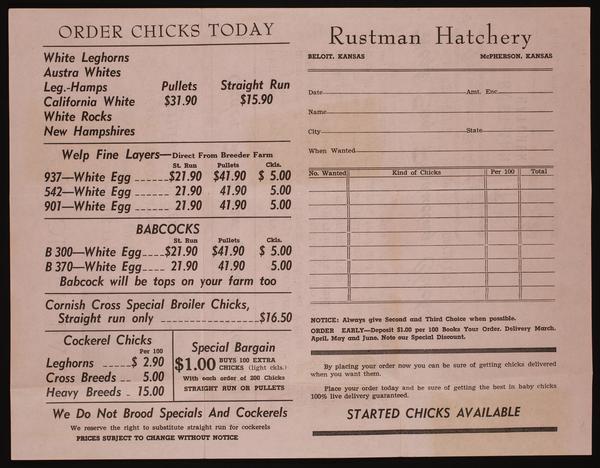 ORDER CHICKS TODAY
White Leghorns
Austra Whites
Leg.-Hamps Pullets Straight Run
California White $31.90 $15.90
White Rocks
New Hampshires
Welp Fine Layers—Direct From Breeder Farm
St. Run Pullets Ckls.
937—White Egg ____$21.90 $41.90 $ 5.00
542—White Egg ____ 21.90 41.90 5.00
901—White Egg ____ 21.90 41.90 5.00
BABCOCKS
St. Run Pullets Ckls.
B 300—White Egg____$21.90 $41.90 $ 5.00
B 370—White Egg____ 21.90 41.90 5.00
Babcock will be tops on your farm too
Cornish Cross Special Broiler Chicks,
Straight run only ________________$16.50
Cockerel Chicks
Per 100
Leghorns _____$ 2.90
Cross Breeds __ 5.00
Heavy Breeds _ 15.00
Special Bargain
$1.00 BUYS 100 EXTRA
CHICKS (light ckls.)
With each order of 200 Chicks
STRAIGHT RUN OR PULLETS
We Do Not Brood Specials And Cockerels
We reserve the right to substitute straight run for cockerels
PRICES SUBJECT TO CHANGE WITHOUT NOTICE
Rustman Hatchery
BELOIT, KANSAS McPHERSON, KANSAS
Date Amt. Enc.
Name
City State
When Wanted
No. Wanted Kind of Chicks Per 100 Total
NOTICE: Always give Second and Third Choice when possible.
ORDER EARLY—Deposit $1.00 per 100 Books Your Order. Delivery March,
April, May and June. Note our Special Discount.
By placing your order now you can be sure of getting chicks delivered
when you want them.
Place your order today and be sure of getting the best in baby chicks
100% live delivery guaranteed.
STARTED CHICKS AVAILABLE